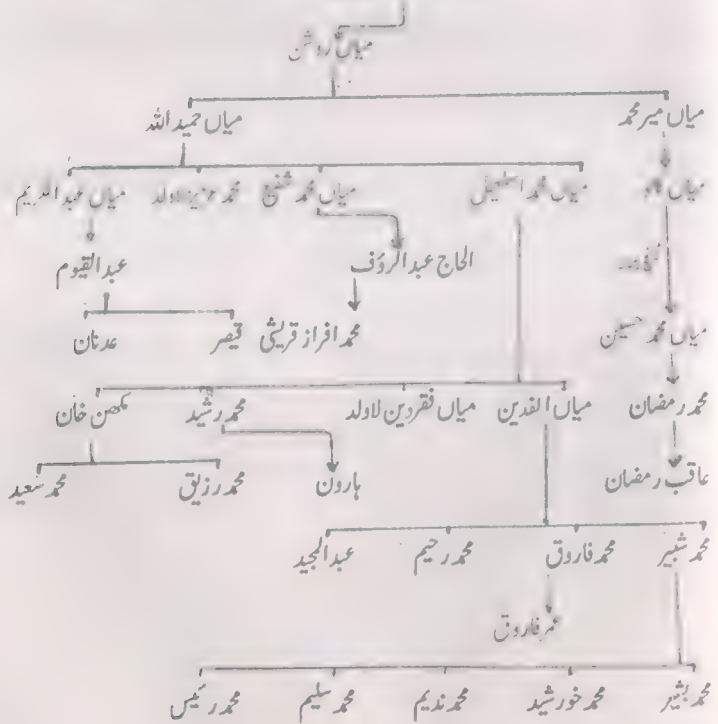 میاں روشن
میاں میر محمد میاں حمید اللہ
میاں میاں محمد اسمٰعیل میاں محمد شفیع محمد عزیز لاولد میاں عبدالکریم
الحاج عبدالرؤف عبدالقیوم
میاں محمد حسین محمد افراز قریشی قیصر عدنان
محمد رمضان میاں الفدین میاں فقردین لاولد محمد رشید مکھن خان
عاقب رمضان ہارون محمد رزیق محمد سعید
محمد شبیر محمد فاروق محمد رحیم عبدالمجید
عمر فاروق
محمد بشیر محمد خورشید محمد ندیم محمد سلیم محمد رئیس